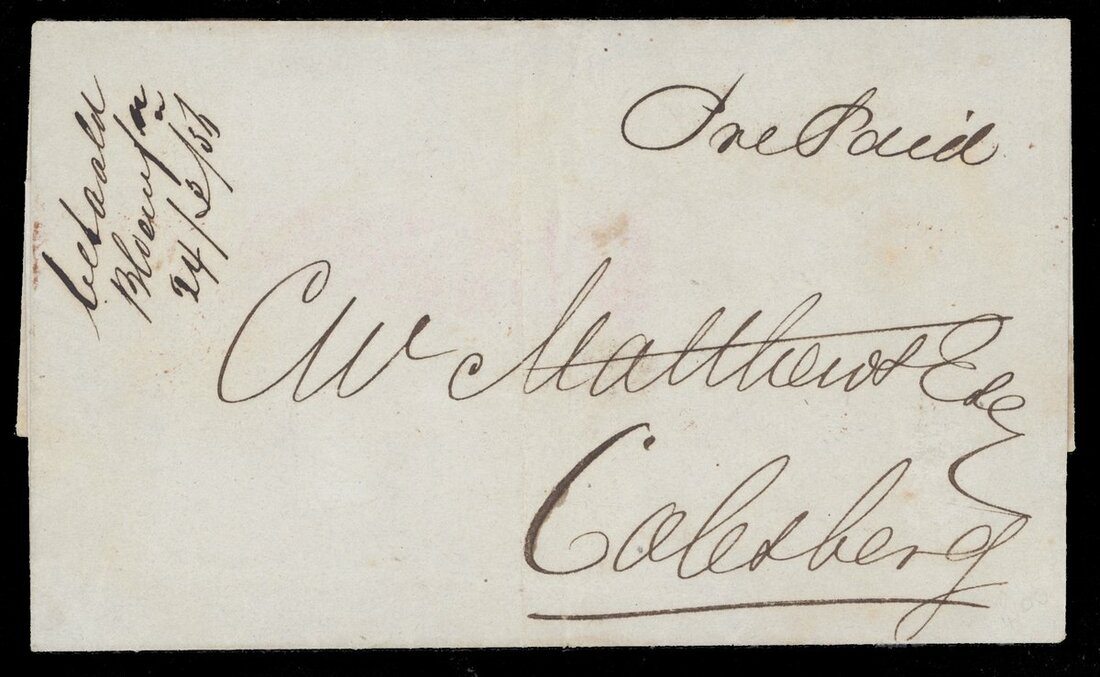 betaald
Bloemfn
24/3/56
Pre Paid
CW Matthews Esq
Colesberg